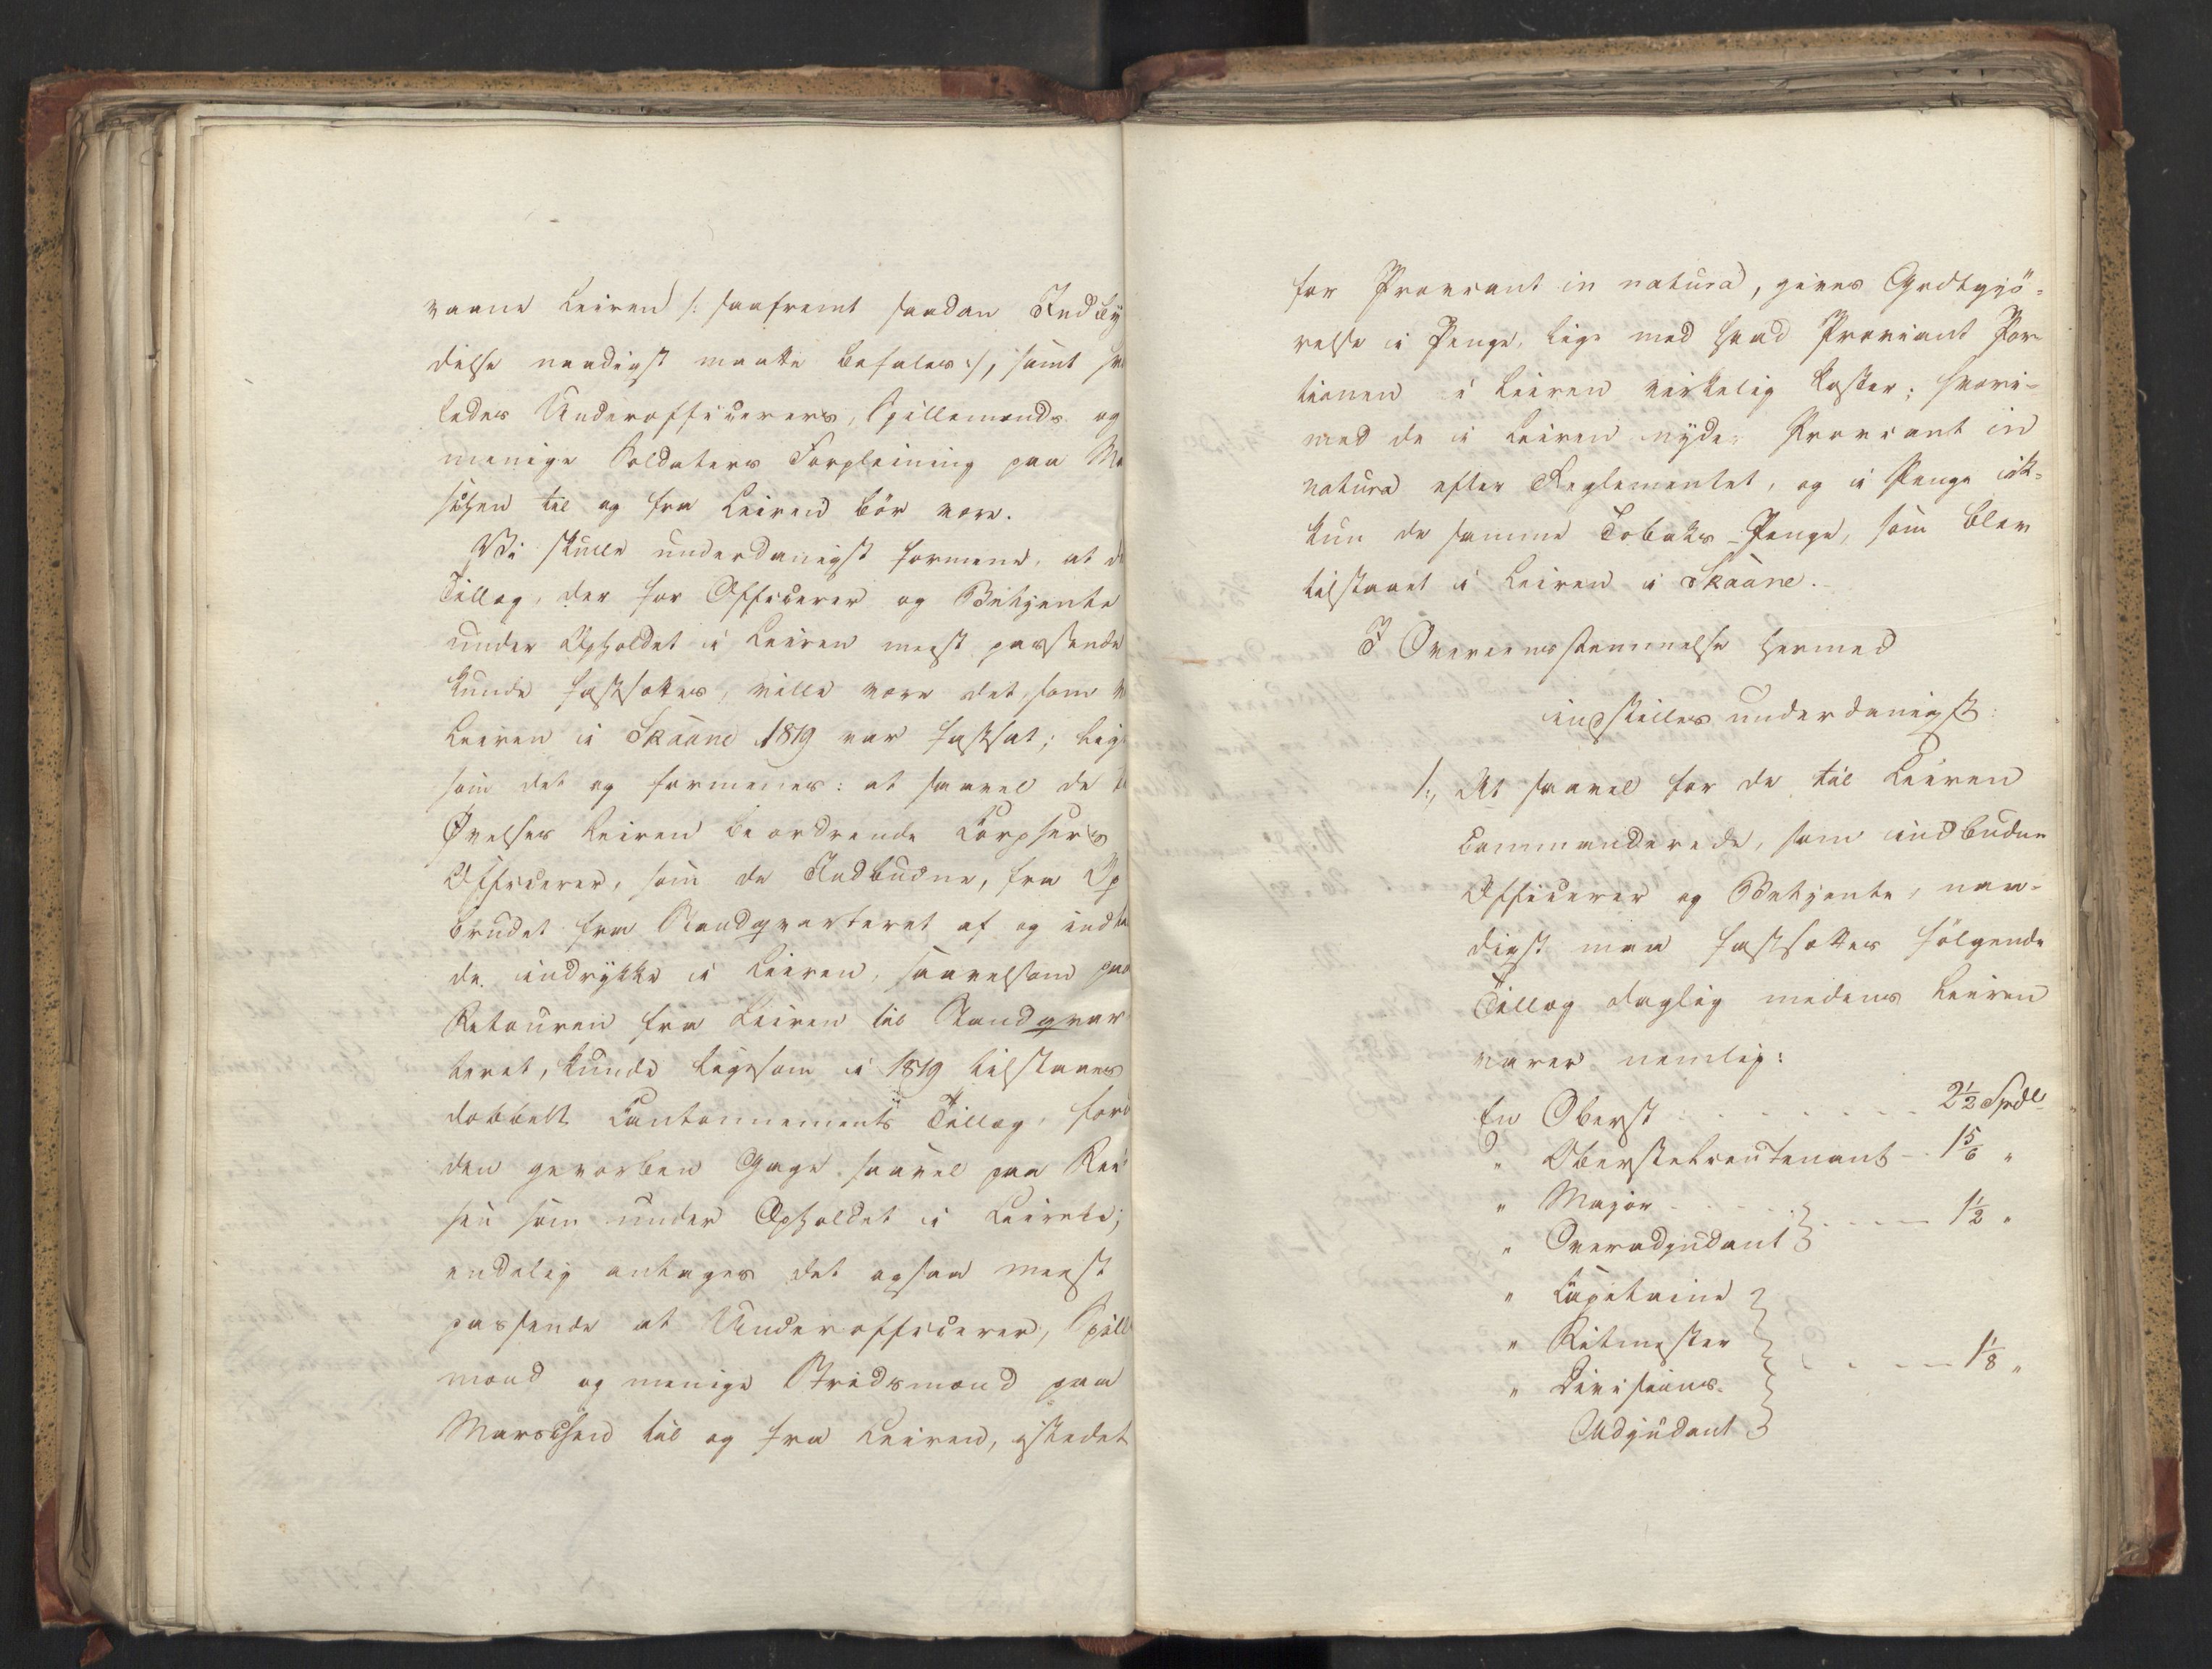 vaane Leiren /: saafremt saadan Indby
delse naadigst maatte befales :/, samt hvo
ledes Underofficerers, Spillemænds og
menige Soldaters Forpleining paa Ma
schen til og fra Leiren bör være.
Vi skulle underdanigst formene, at d
Tillæg, der for Officerer og Betjente
under Opholdet i Leiren meest passende
kunde fastsættes, ville være det, som
Leiren i Skaane 1819 var fastsat; lige
som det og formenes: at saavel de
Øvelses Leiren beordrende Corpsers
Officerer, som de Indbudne, fra Op
brudet fra Standqvarteret af og indtil
de indrykke i Leiren, saavelsom paa
Retouren fra Leiren til Standqvar
teret, kunde ligesom i 1819 tilstaaes
dobbelt Cantonnements Tillæg, for
den gevorben Gage saavel paa Rei
sen som under Opholdet i Leiren;
endelig antages det ogsaa meest
passende at Underofficerer, Spille
mænd og menige Stridsmænd paa
Marschen til og fra Leiren, istedet
for Proviant in natura, gives Godtgjö-
relse i Penge, lige med hvad Proviant Por
tionen i Leiren virkelig koster; hvori-
mod de i Leiren nyder Proviant in
natura efter Reglementet, og i Penge ik-
kun de samme Tobaks-Penge, som blev
tilstaaet i Leiren i Skaane.
I Overeensstemmelse hermed
indstilles underdanigst:
1., At saavel for de til Leiren
commanderede, som indbudne
Officerer og Betjente, naa-
digst maa fastsættes fölgende
Tillæg daglig medens Leiren
varer nemlig:
En Oberst . . . . . . . 2½ Spdlr
" Oberstelieutenant - . 1 5/6 "
" Major . . . . . } . . - - - 1½ "
" Overadjudant }
" Capitaine }
" Ritmester } . . . - - - 1 1/8 "
" Divisions- }
Adjudant }